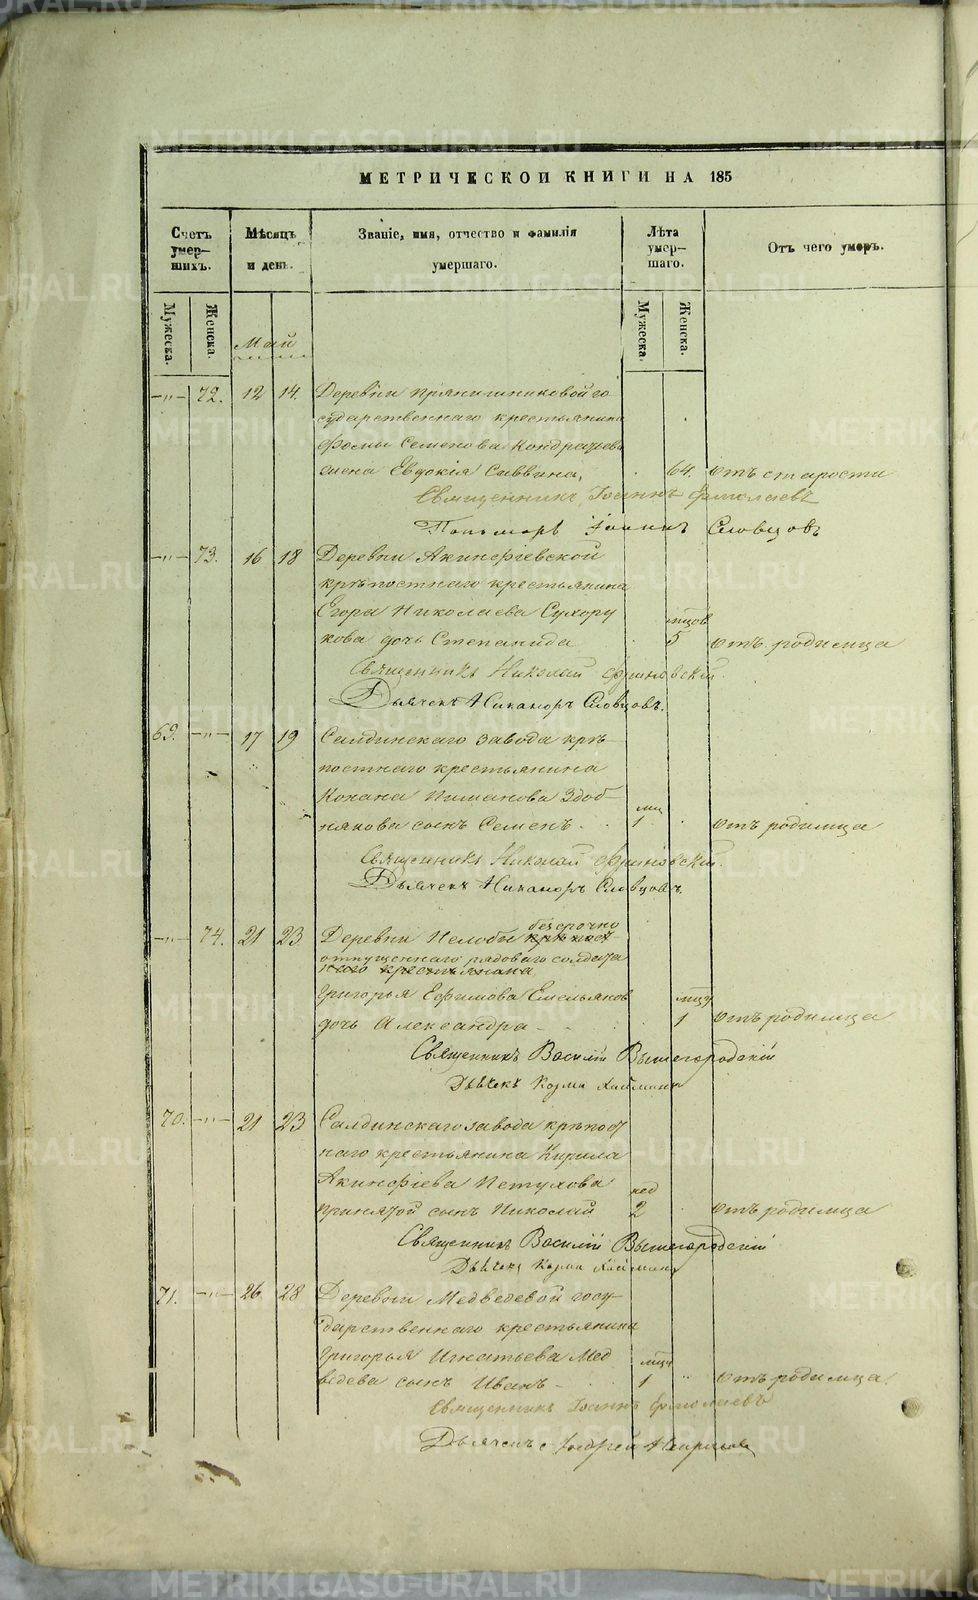 МЕТРИЧЕСКОЙ КНИГИ НА 185
Счетъ умер-шихъ.
Мѣсяцъ и день.
Званіе, имя, отчество и фамилія умершаго.
Лѣта умер-шаго.
Отъ чего умеръ.
Мужеска.
Женска.
Май
Мужеска.
Женска.
—"— 72. 12 14. Деревни Прянишниковой го
сударственнаго крестьянина
Фомы Семенова Кондрашева
жена Евдокія Саввина, 64. отъ старости
Священникъ Іоаннъ Ермолаевъ
Пономарь Іоаннъ Словцовъ
—"— 73. 16 18 Деревни Акинфіевской
крѣпостнаго крестьянина
Егора Николаева Сухору
кова дочь Степанида мцов 5 отъ родимца
Священникъ Николай Флоровскій.
Дьячекъ Никаноръ Словцовъ.
69. —"— 17 19 Салдинскаго завода крѣ-
постнаго крестьянина
Конана Пиманова Здоб-
някова сынъ Семенъ. мц 1 отъ родимца
Священникъ Николай Флоровскій.
Дьячекъ Никаноръ Словцовъ.
—"— 74. 21 23 Деревни Нелобы безсрочно
отпущеннаго рядоваго солдата
Григорья Ефимова Емельянов
дочь Александра мцу 1 отъ родимца
Священникъ Василій Вышегородскій
Дьячекъ Козма
70. —"— 21 23 Салдинскаго завода крѣпост
наго крестьянина Кирила
Акинфіева Петухова
принятой сынъ Николай нед 2 отъ родимца
Священникъ Василій Вышегородскій
Дьячекъ Козма
71. —"— 26 28 Деревни Медведевой госу-
дарственнаго крестьянина
Григорья Игнатьева Мед
ведева сынъ Иванъ мцу 1 " отъ родимца
Священникъ Іоаннъ Ермолаевъ
Дьячекъ Андрей
METRIKI.GASO-URAL.RU